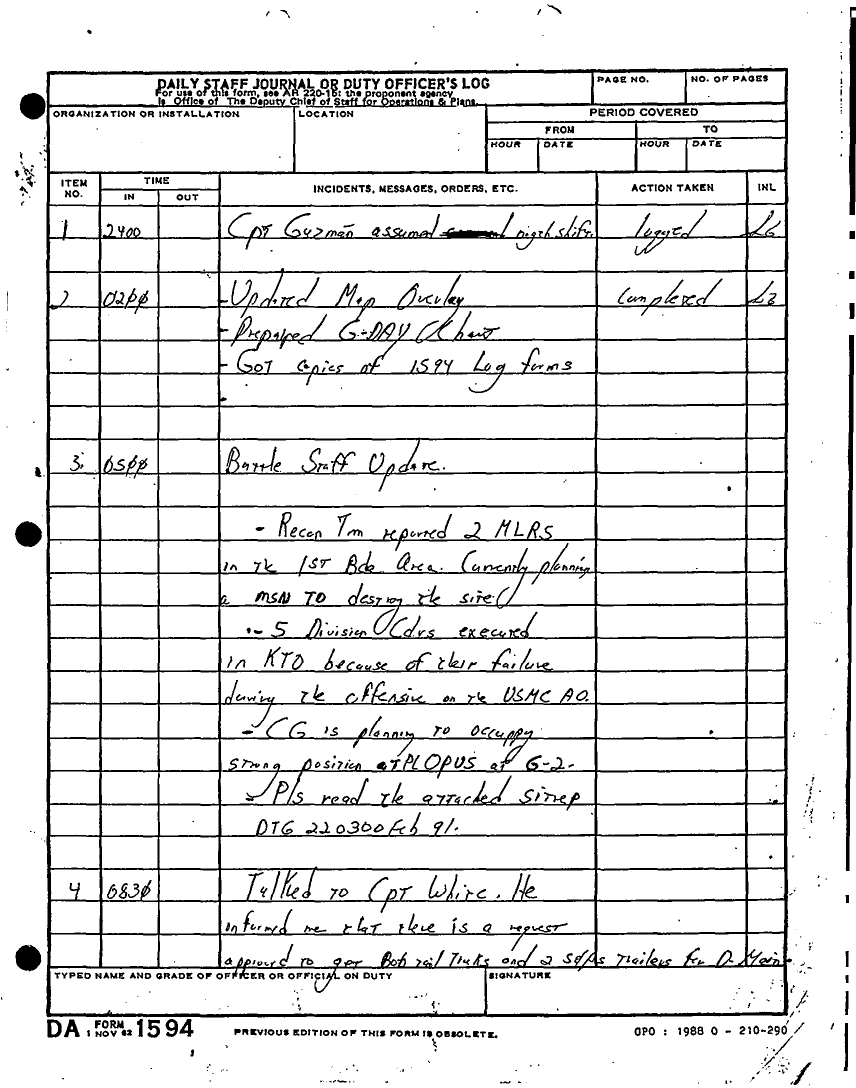 DAILY STAFF JOURNAL OR DUTY OFFICER'S LOG
For use of this form, see AR 220-15; the proponent agency
is Office of The Deputy Chief of Staff for Operations & Plans.
PAGE NO.
NO. OF PAGES
ORGANIZATION OR INSTALLATION
LOCATION
PERIOD COVERED
FROM
TO
HOUR
DATE
HOUR
DATE
ITEM NO.
TIME
IN
OUT
INCIDENTS, MESSAGES, ORDERS, ETC.
ACTION TAKEN
INL
1 2400 Cpt Guzman assumed nigth shift. logged LG
2 0200 - Updated Map Overlay completed LG
- Prepared G-DAY Chart
- Got copies of 1594 Log forms
-
3. 0500 Battle Staff Update.
- Recon Tm reported 2 MLRS
in the 1ST Bde Area. Currently planning
a MSN TO destroy the site.
- 5 Division Cdrs executed
in KTO because of their failure
during the offensive on the USMC AO.
- CG is planning to occuppy
strong position at PLOPUS at G-2.
- Pls read the attached Sitrep
DTG 220300 Feb 91.
4 0830 Talked to Cpt White. He
informed me that there is a request
approved to get Bob tail Trucks and 2 Trailers for D-Main
TYPED NAME AND GRADE OF OFFICER OR OFFICIAL ON DUTY
SIGNATURE
DA FORM 1 NOV 62 1594
PREVIOUS EDITION OF THIS FORM IS OBSOLETE.
GPO : 1988 O - 210-290